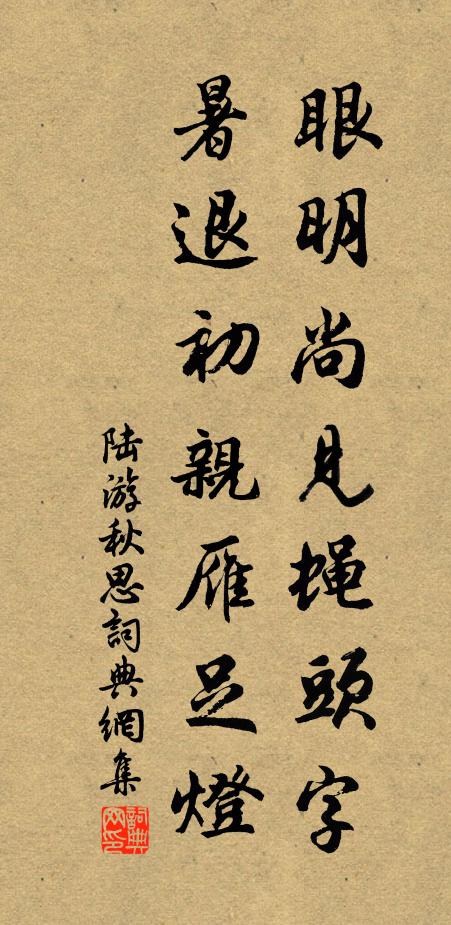 眼明尚見蝇頭字
暑退初親雁足燈
陆游秋思詞典網集
詞典网印